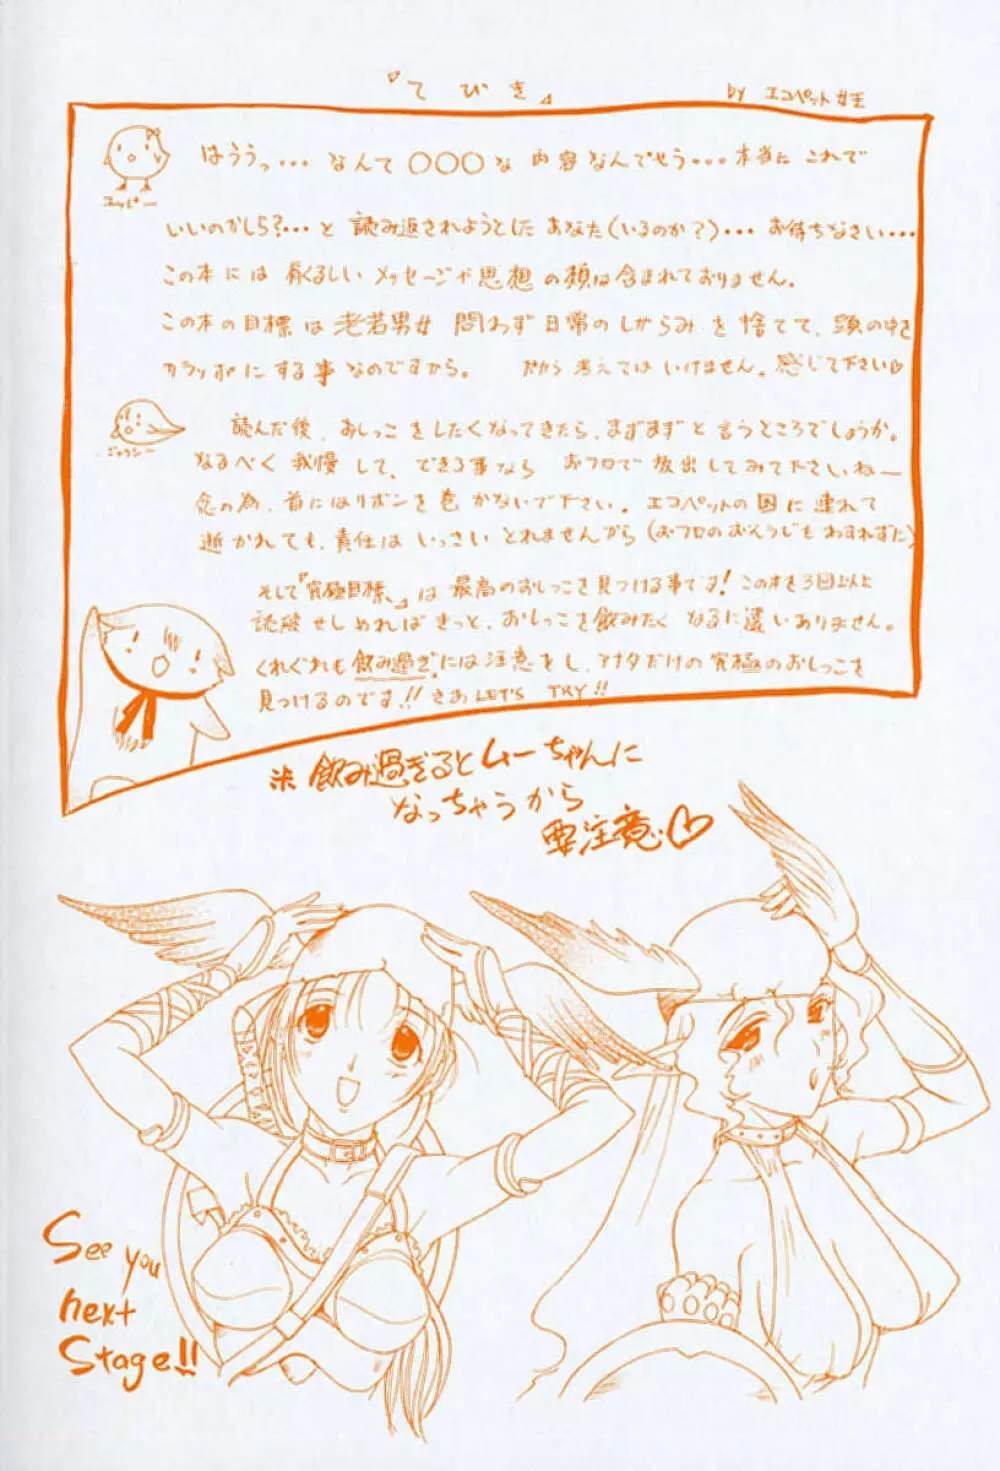 『てびき』
by エコペット女王
はううっ・・・なんて○○○な内容なんでせう・・・本当にこれで
いいのかしら?・・・と読み返されようとしたあなた(いるのか?)・・・お待ちなさい・・・
この本には 苦しいメッセージや思想の類は含まれておりません。
この本の目標は老若男女問わず日常のしがらみを捨てて、頭の中を
カラッポにする事なのですから。 だから考えてはいけません。感じて下さい♡
読んだ後、おしっこをしたくなってきたら、まずまずと言うところでしょうか。
なるべく我慢して、できる事ならおフロで放出してみて下さいね〜
念の為、首にはリボンを巻かないで下さい。エコペットの国に連れて
逝かれても、責任はいっさいとれませんから(おフロのおそうじもわすれずに)
そして『究極目標』は最高のおしっこを見つける事です!この本を3回以上
読破せしめればきっと、おしっこを飲みたくなるに違いありません。
くれぐれも飲み過ぎには注意をし、アナタだけの究極のおしっこを
見つけるのです!!さあLET'S TRY!!
※飲み過ぎるとムーちゃんに
なっちゃうから
要注意♡
See you
next
Stage!!